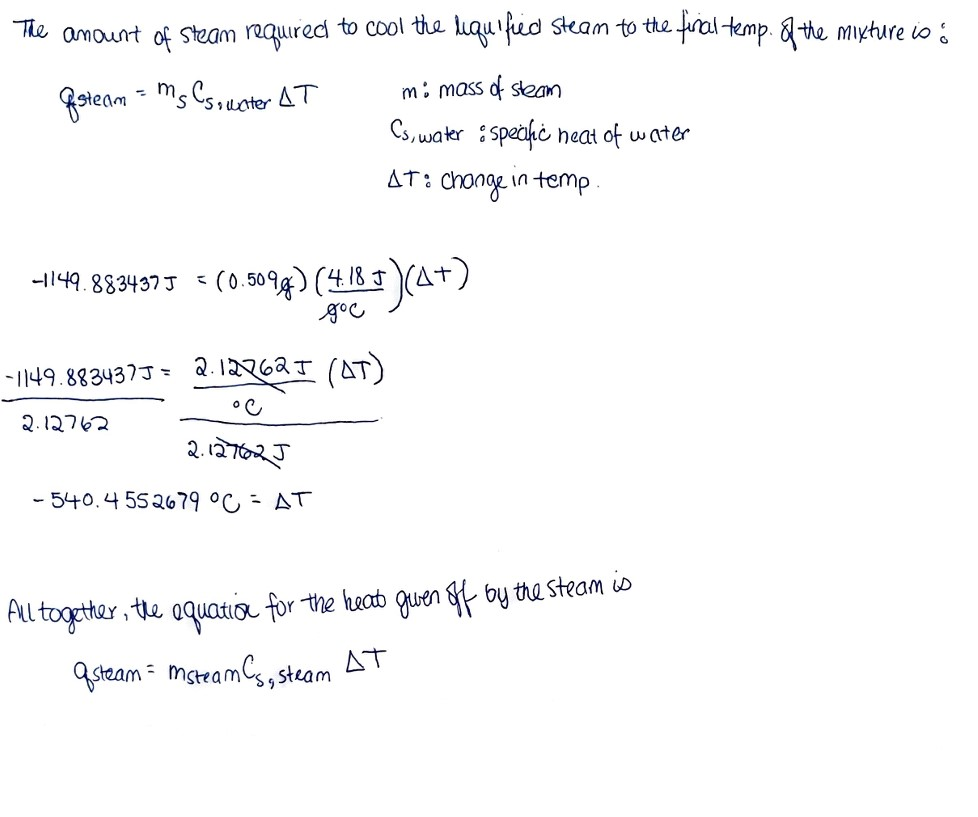 The amount of steam required to cool the liquified steam to the final temp. of the mixture is :
qsteam = ms Cs, water ΔT
m : mass of steam
Cs, water : specific heat of water
ΔT : change in temp.
-1149.883437 J = (0.509 g) (4.18 J / g°C) (Δt)
-1149.883437 J / 2.12762 = 2.12762 J / °C (ΔT) / 2.12762 J
-540.4552679 °C = ΔT
All together, the equation for the heat given off by the steam is
qsteam = msteam Cs, steam ΔT